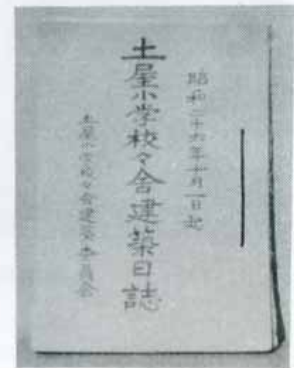 昭和二十六年十月一日起
土屋小学校々舎建築日誌
土屋小学校々舎建築委員会